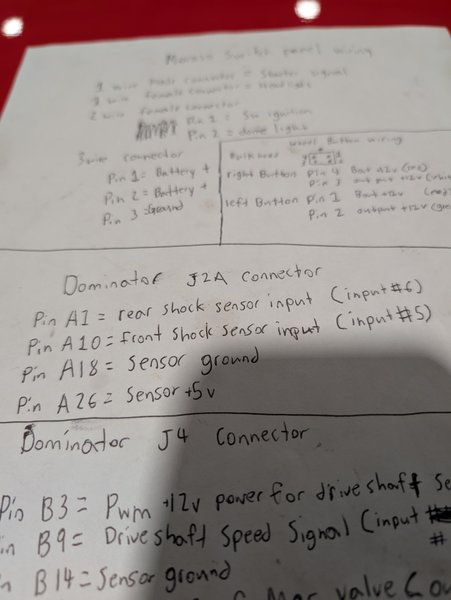 Moroso Switch panel wiring
1 wire male connector = Starter signal
1 wire female connector = Headlight
2 wire female connector
Pin 1 = Sw ignition
Pin 2 = dome light
3 wire connector
Pin 1 = Battery +
Pin 2 = Battery +
Pin 3 = Ground
wheel Button wiring
Bulkhead
right Button Pin 4 Batt +12v (red)
Pin 3 output +12v
left Button Pin 1 Batt +12v (red)
Pin 2 output +12v
Dominator J2A connector
Pin A1 = rear shock sensor input (input #6)
Pin A10 = front shock sensor input (input #5)
Pin A18 = Sensor ground
Pin A26 = Sensor +5v
Dominator J4 Connector
Pin B3 = Pwm +12v power for driveshaft Se
in B9 = Driveshaft Speed Signal (input
#
n B14 = Sensor ground
valve (ou